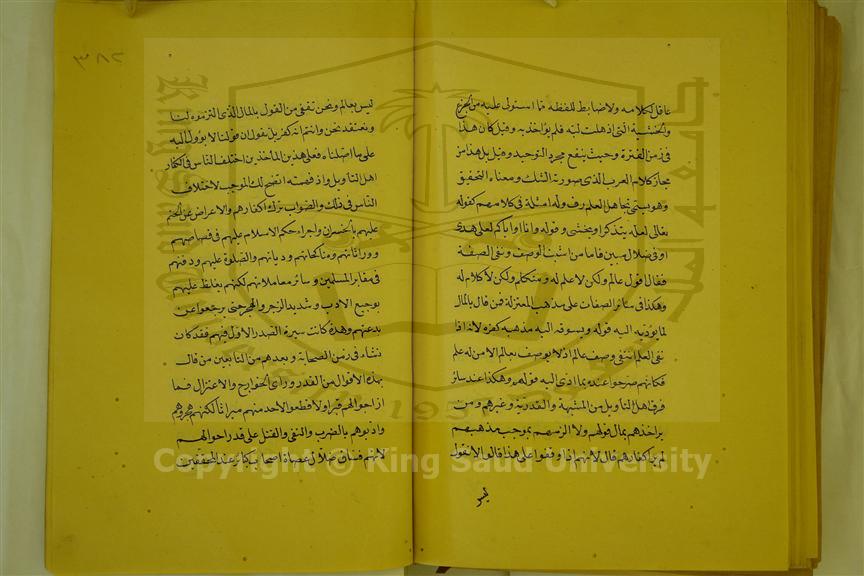 عاقل لكلامه ولا ضابط للفظه مما استولى عليه من الجزع
والخشية التي اذهلت لبه فلم يؤاخذ به وقيل كان هذا
في زمن الفترة وحيث ينفع مجرد التوحيد وقيل بل هذا من
مجاز كلام العرب الذي صورته الشك ومعناه التحقيق
وهو يسمى تجاهل العارف وله امثلة في كلامهم كقوله
تعالى لعله يتذكر او يخشى وقوله وانا او اياكم لعلى هدى
او في ضلال مبين فاما من اثبت الوصف ونفى الصفة
فقال اقول عالم ولكن لا علم له ومتكلم ولكن لا كلام له
وهكذا في سائر الصفات على مذهب المعتزلة فمن قال بالمال
لما يؤديه اليه قوله ويسوقه اليه مذهبه كفره لانه اذا
نفى العلم انتفى وصف عالم اذ لا يوصف بعالم الا من له علم
فكانهم صرحوا عنده بما ادى اليه قولهم وهكذا عند سائر
فرق اهل التاويل من المشبهة والقدرية وغيرهم ومن
لم ير اخذهم بمال قولهم ولا الزمهم بموجب مذهبهم
لم ير اكفارهم قال لانهم اذا وقفوا على هذا قالوا لا نقول
ليس
٣٨٢
ليس بعالم ونحن ننتفي من القول بالمال الذي الزمتموه لنا
ونعتقد نحن وانتم انه كفر بل نقول ان قولنا لا يؤول اليه
على ما اصلناه فعلى هذين الماخذين اختلف الناس في اكفار
اهل التاويل واذا فهمته اتضح لك الموجب لاختلاف
الناس في ذلك والصواب ترك اكفارهم والاعراض عن الحتم
عليهم بالخسران واجراء حكم الاسلام عليهم في قصاصهم
ووراثاتهم ومناكحاتهم ودياتهم والصلوة عليهم ودفنهم
في مقابر المسلمين وسائر معاملاتهم لكنهم يغلظ عليهم
بوجيع الادب وشديد الزجر والهجر حتى يرجعوا عن
بدعتهم وهذه كانت سيرة الصدر الاول فيهم فقد كان
نشاء في زمن الصحابة وبعدهم من التابعين من قال
بهذه الاقوال من القدر وراي الخوارج والاعتزال فما
ازاحوا لهم قبرا ولا قطعوا لاحد منهم ميراثا لكنهم هجروهم
وادبوهم بالضرب والنفي والقتل على قدر احوالهم
لانهم فساق ضلال عصاة اصحاب كبائر عند المحققين
Copyright © King Saud University